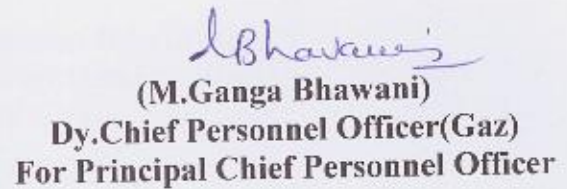 (M.Ganga Bhawani)
Dy.Chief Personnel Officer(Gaz)
For Principal Chief Personnel Officer